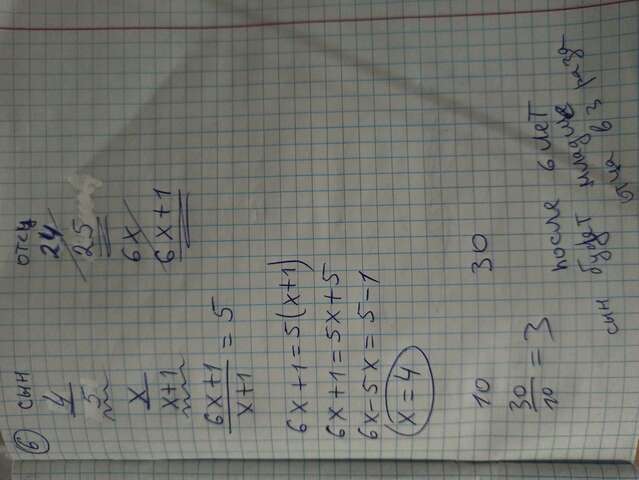 ⑥ сын отец
4 24
5 25
x 6x
x+1 6x+1
6x+1 / x+1 = 5
6x+1=5(x+1)
6x+1=5x+5
6x-5x=5-1
x=4
10 30
30/10 = 3
после 6 лет
сын будет младше
отца в 3 раза